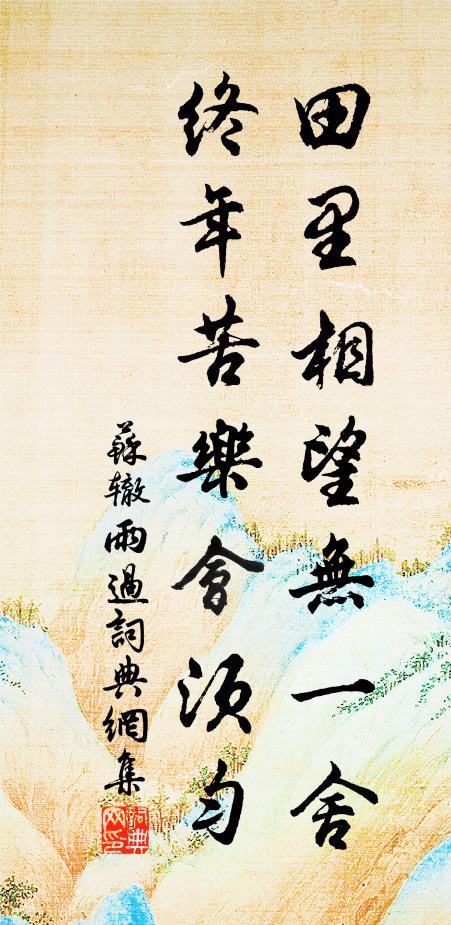 田里相望無一舍
終年苦樂會須勻
蘇轍雨過詞典網集
詞典